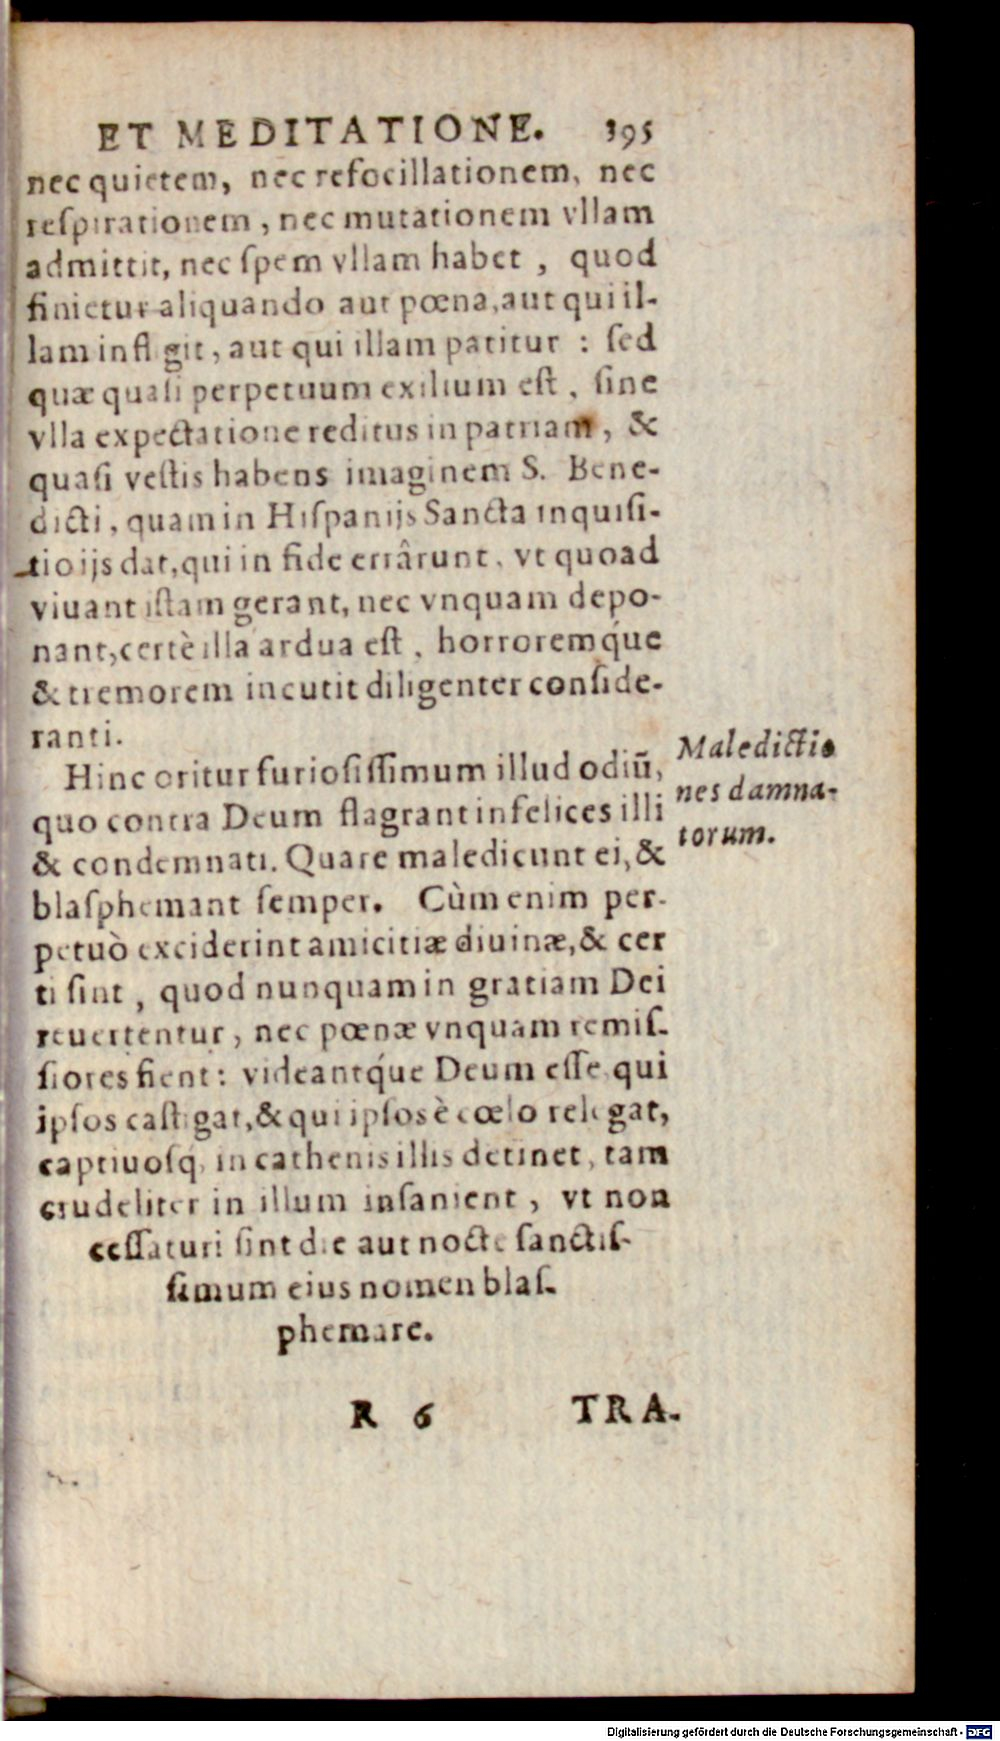 ET MEDITATIONE. 395
nec quietem, nec refocillationem, nec
reſpirationem, nec mutationem vllam
admittit, nec ſpem vllam habet, quod
finietur aliquando aut pœna, aut qui il-
lam infligit, aut qui illam patitur : ſed
quæ quaſi perpetuum exilium eſt, ſine
vlla expectatione reditus in patriam, &
quaſi veſtis habens imaginem S. Bene-
dicti, quam in Hiſpanijs Sancta inquiſi-
tio ijs dat, qui in fide errârunt, vt quoad
viuant iſtam gerant, nec vnquam depo-
nant, certè illa ardua eſt, horroremq́ue
& tremorem incutit diligenter conſide-
ranti.
Hinc oritur furioſiſſimum illud odiũ,
quo contra Deum flagrant infelices illi
& condemnati. Quare maledicunt ei, &
blaſphemant ſemper. Cùm enim per-
petuò exciderint amicitiæ diuinæ, & cer
ti ſint, quod nunquam in gratiam Dei
reuertentur, nec pœnæ vnquam remiſ-
ſiores fient: videantq́ue Deum eſſe qui
ipſos caſtigat, & qui ipſos è cœlo relegat,
captiuoſq́; in cathenis illis detinet, tam
crudeliter in illum inſanient, vt non
ceſſaturi ſint die aut nocte ſanctiſ-
ſimum eius nomen blaſ-
phemare.
Maledictio
nes damna-
torum.
R 6 TRA-
Digitalisierung gefördert durch die Deutsche Forschungsgemeinschaft - DFG